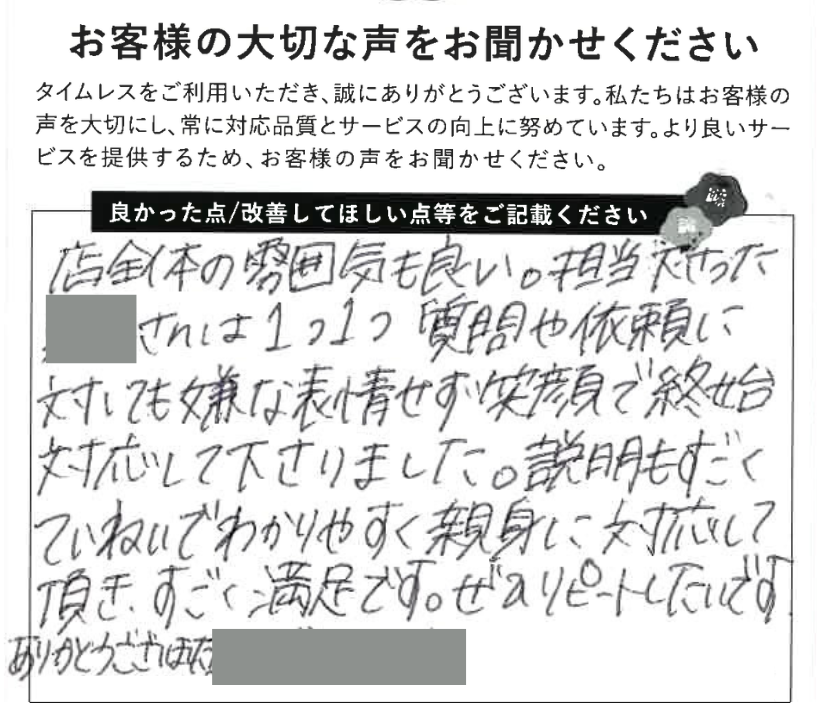 お客様の大切な声をお聞かせください
タイムレスをご利用いただき、誠にありがとうございます。私たちはお客様の
声を大切にし、常に対応品質とサービスの向上に努めています。より良いサー
ビスを提供するため、お客様の声をお聞かせください。
良かった点/改善してほしい点等をご記載ください
店全体の雰囲気も良い。担当だった
さんは1つ1つ質問や依頼に
対しても嫌な表情せず笑顔で終始
対応して下さりました。説明もすごく
ていねいでわかりやすく親身に対応して
頂き、すごく満足です。ぜひリピートしたいです
ありがとうございました